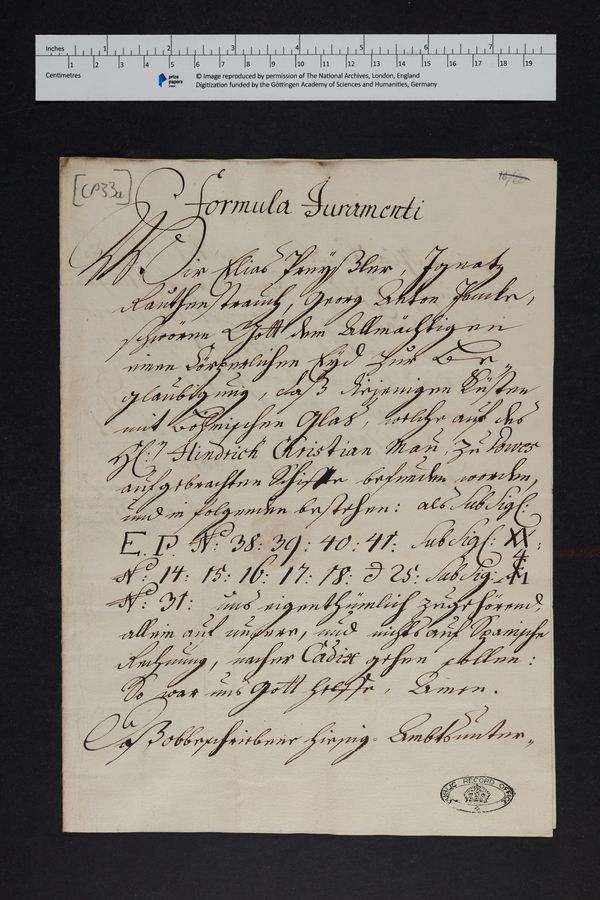 Inches 1 2 3 4 5 6 7
1 2 3 4 5 6 7 8 9 10 11 12 13 14 15 16 17 18 19
Centimetres
prize papers
© Image reproduced by permission of The National Archives, London, England
Digitization funded by the Göttingen Academy of Sciences and Humanities, Germany
[CP33a]
Formula Juramenti
Wir Elias Preysler, Ignatz
Rauthenstrauch, Georg Anton Jancke,
schwören Gott dem Allmächtigen
einen Cörperlichen Eyd zur Be„
glaubigung, daß diejenigen Küsten
mit Böhmischen Glas, welche auf des
H: Hindrich Christian Mau, zu Cowes
aufgebrachten Schiffe befunden worden,
und in folgenden bestehen: als Sub Sig:
E. P. No: 38: 39: 40: 41: Sub Sig:
No: 14: 15: 16: 17: 18: 25: Sub Sig:
No: 31: uns eigenthümlich zugehörend,
allein auf unsere, und nichts auf Spanische
Rechnung, nacher Cadix gehen sollen:
So war uns Gott helffe, Amen.
Daß obbeschriebene hiesig Ambtsunter„
PUBLIC RECORD OFFICE